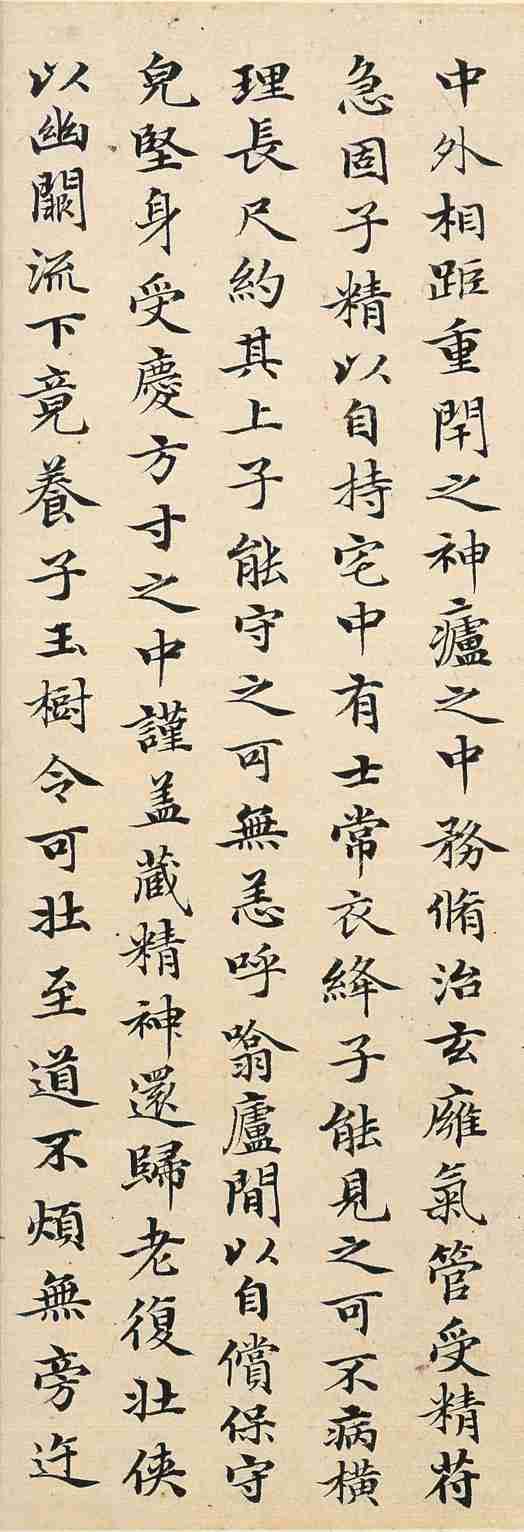 中外相距重閇之神廬之中務脩治玄廱氣管受精苻
急固子精以自持宅中有士常衣絳子能見之可不病橫
理長尺約其上子能守之可無恙呼噏廬間以自償保守
皃堅身受慶方寸之中謹盖藏精神還歸老復壯俠
以幽闕流下竟養子玉樹令可壯至道不煩無旁迕